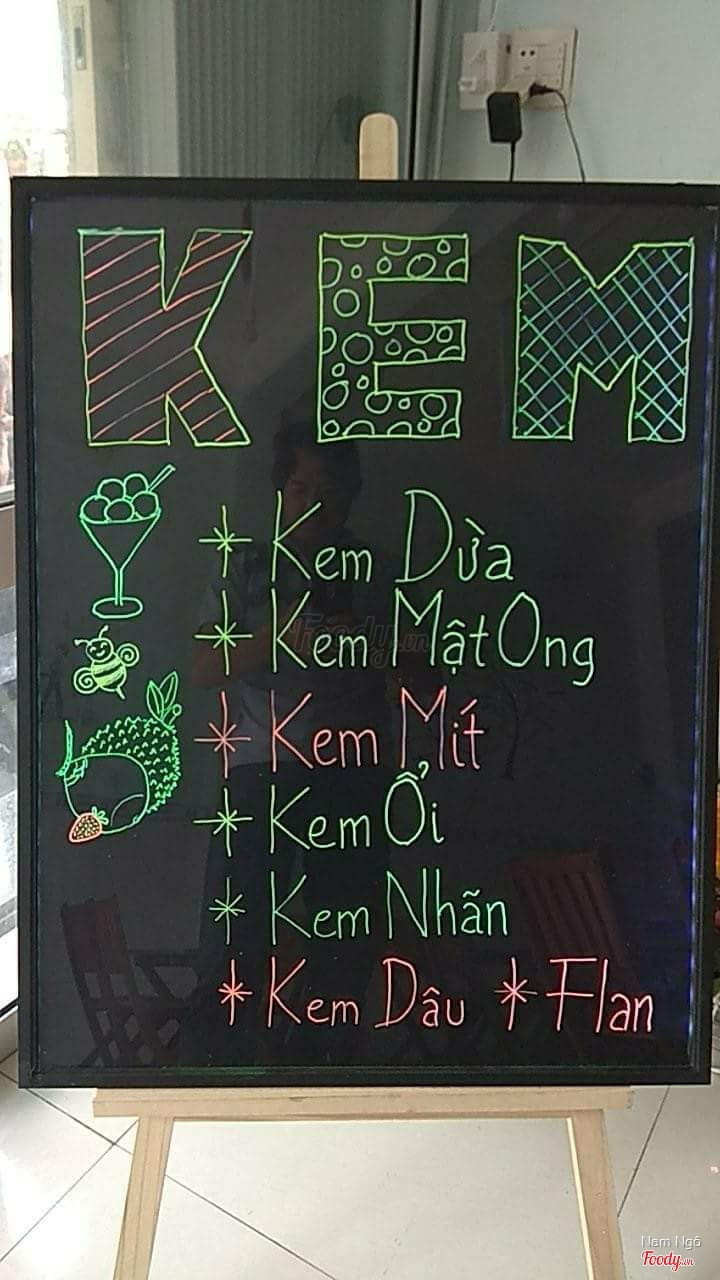 KEM
* Kem Dừa
* Kem Mật Ong
* Kem Mít
* Kem Ổi
* Kem Nhãn
* Kem Dâu * Flan
Foody.vn
Nam Ngô
Foody.vn